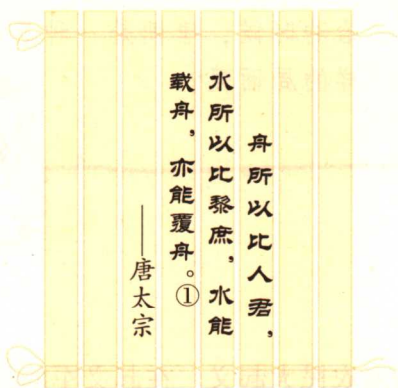 舟所以比人君，
水所以比黎庶，水能
载舟，亦能覆舟。①
——唐太宗